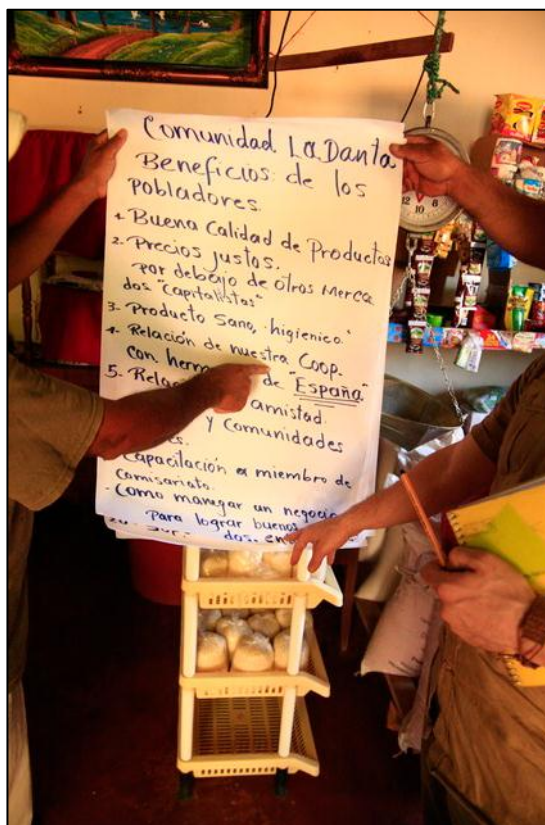 Comunidad La Danta
Beneficios de los
Pobladores.
1- Buena Calidad de Productos
2- Precios justos.
por debajo de otros Merca
dos "Capitalistas"
3- Producto Sano, higienico.
4- Relación de nuestra Coop.
con de "España"
5- amistad.
y Comunidades
Capacitación a miembro de
Comisariato.
- Como manegar un negocio
Para lograr buenos